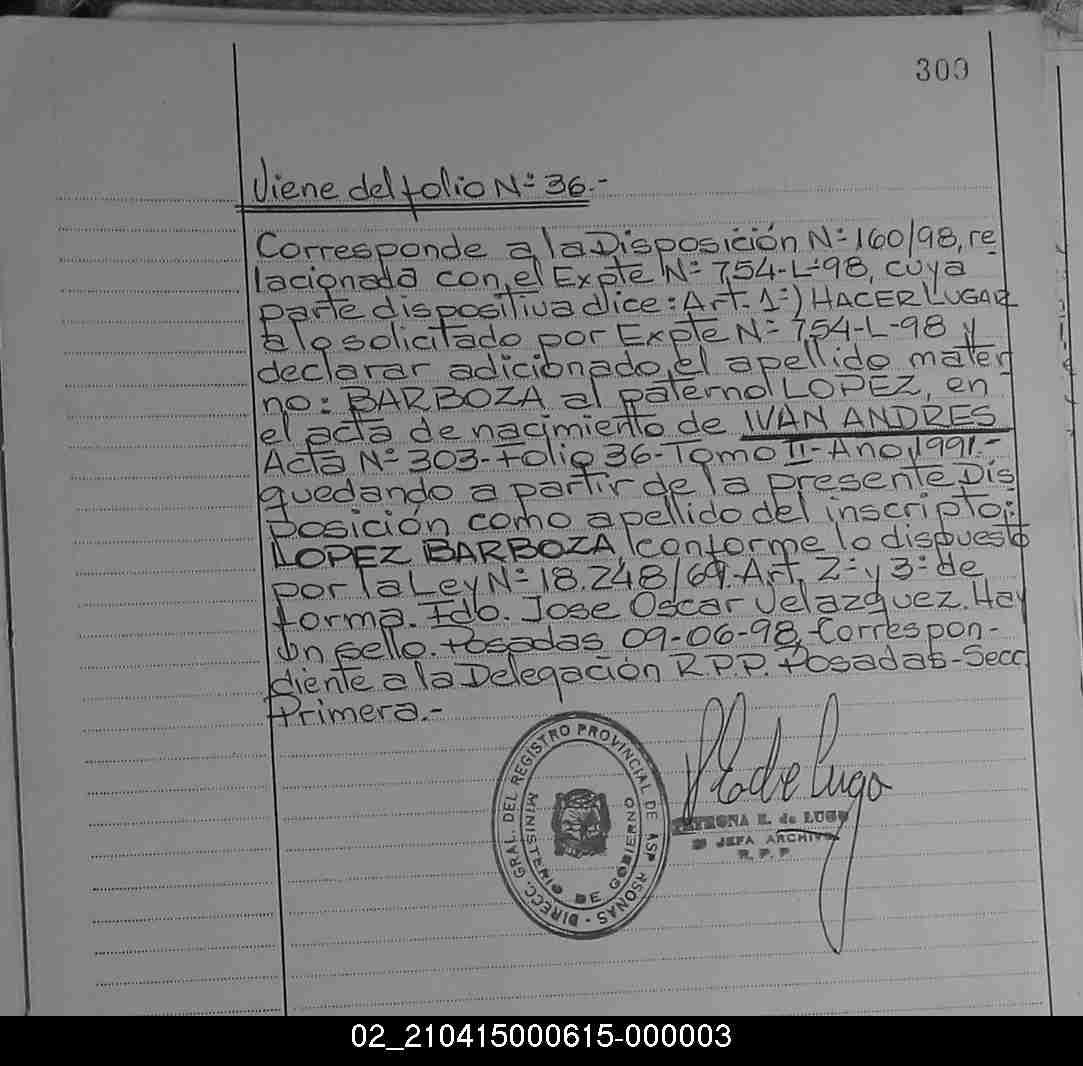 300
Viene del folio Nº 36.-
Corresponde a la Disposición Nº 160/98, re
lacionada con el Expte Nº 754-L-98, cuya
parte dispositiva dice: Art. 1º) HACER LUGAR
a lo solicitado por Expte Nº 754-L-98 y
declarar adicionado el apellido mater
no: BARBOZA al paterno LOPEZ, en
el acta de nacimiento de IVAN ANDRES
Acta Nº 303-Folio 36-Tomo II-Año 1991.-
quedando a partir de la presente Dis
posición como apellido del inscripto:
LOPEZ BARBOZA, conforme lo dispuesto
por la Ley Nº 18.248/69. Art. 2º y 3º de
forma. Fdo. Jose Oscar Velazquez. Hay
un sello. Posadas 09-06-98, Correspon-
diente a la Delegación R.P.P. Posadas-Secc.
Primera.-
DIRECC. GRAL. DEL REGISTRO PROVINCIAL DE
MINISTERIO DE GOBIERNO
de Lugo
PETRONA E. de LUGO
JEFA ARCHIVO
R. P. P
02_210415000615-000003